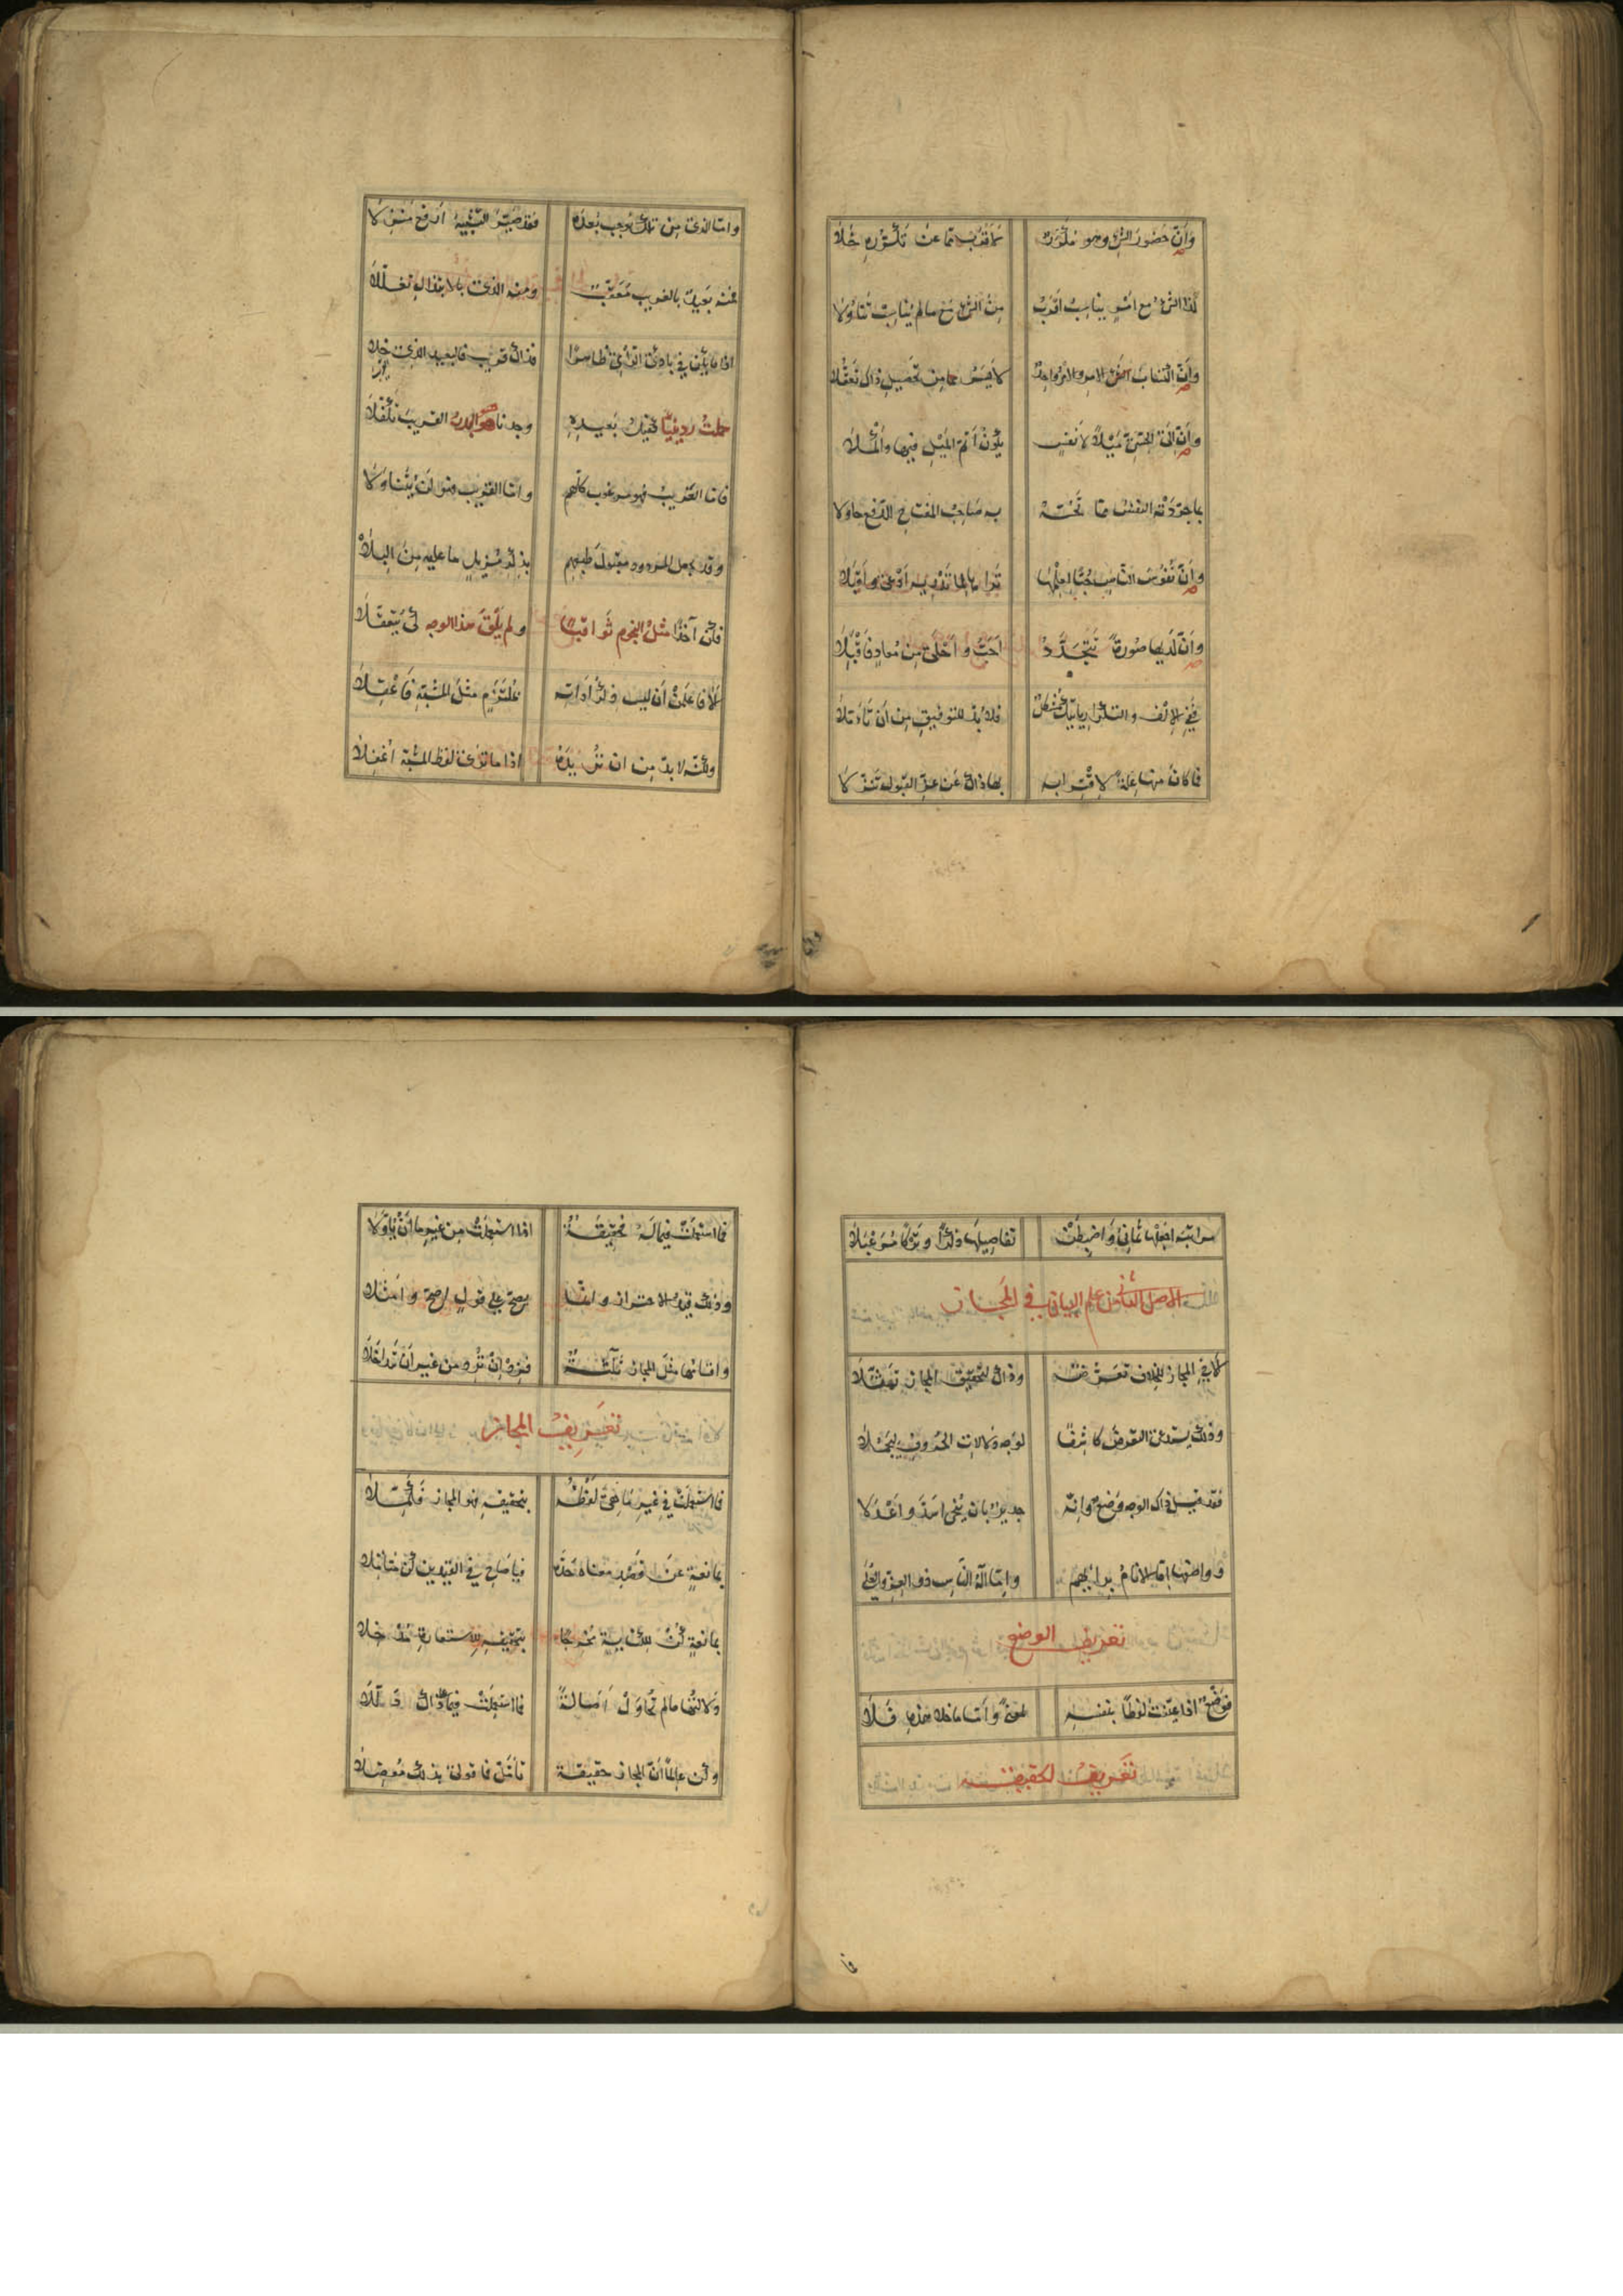 وأن حضور الشيء وهو مكرر كما قرب مما عن تكرره خلا
كذا الشيء مع أمر يناسب أقرب من الشيء مع ما لم يناسب تناولا
وأن التفات النفس الأمر والأمر واحد لأيسر مما من تحصيل ذاك تعقلا
وأن إلى الحسي ميلا لأنفس يكون أتم الميل فيها وأكملا
بما جردته النفس مما تحته به صاحب المفتاح الدفع حاولا
وأن نفوس الناس حبا لعلمها
وأن لديها صورة تتجدد أحب وأحلى من معاد فأقبلا
ففي الإلف والتكرار يأتيك مشكل فلا بد للتوفيق من أن تأملا
فما كان منها علة لاقترابه بهاذاك عن عز القبول تنزلا
وأما الذي من تلك يوجب بعده فقد صير التشبيه أرفع منزلا
فمنه بعيد بالغريب معقب ومنه الذي بالابتذال تعللا
إذا ما يكن في بادئ الرأي ظاهرا فذاك قريب فالبعيد الذي خلا
حملت ردينيا كفيل بعيده وجدنا هو البدر القريب تكفلا
فأما الغريب فهو مرغوب كلهم وأما القريب فهو لن يتناولا
وقد يجعل المردود مقبول طبعهم بذكر مزيل ما عليه من البلا
فكن آخذا مثل النجوم ثواقبا ولم يلق هذا الوجه لي يتعقلا
ألا فاعلمن أن ليس ذكر أداته بملتزم مثل المشبه فاعقلا
ولكنه لا بد من أن تريده إذا ما ترى لفظ المشبه أغفلا
مراتبه اجعلها ثماني واضبطن تفاصيلها ذكرا وتركا مرعبلا
الأصل الثاني من علم البيان في المجاز
ألا في المجاز للخلاف تعرضت وذاك لتحقيق المجاز تعقلا
وذلك يستدعي التعرض كاشفا لوجه دلالات الحروف ليجملا
فقد قيل ذاك الوجه وضع وإنه جدير بأن ينحى أسد وأعدلا
وواضعها إما الأنام برأيهم وإما إله الناس ذو العز والعلى
تعريف الوضع
فوضع إذا عينت لفظا بنفسه لمعنى وأما ما خلا هذه فلا
تعريف الحقيقة
فما استعملت فيما له تحقيقة إذا استعملت من غير ما أن يأولا
وذلك قيد الاحتراز وإنما يصح على قول أصح وأمثلا
وأقسامها مثل المجاز ثلاثة فزد إن ترد من غير أن تداخلا
تعريف المجاز
فما استعملت في غير ما هي لفظه بتحقيقه فهو المجاز فكملا
بمانعة عن قصد معناه تحذه فيا صاح في القيدين كن متأملا
بمانعة كن للكناية مخرجا بتحقيقه للاستعارة مدخلا
ولكنها ما لم تحاول أصالة فما استعملت فيما لذاك تأملا
وكن عالما أن المجاز حقيقة تأمل فما قولي بذلك معضلا